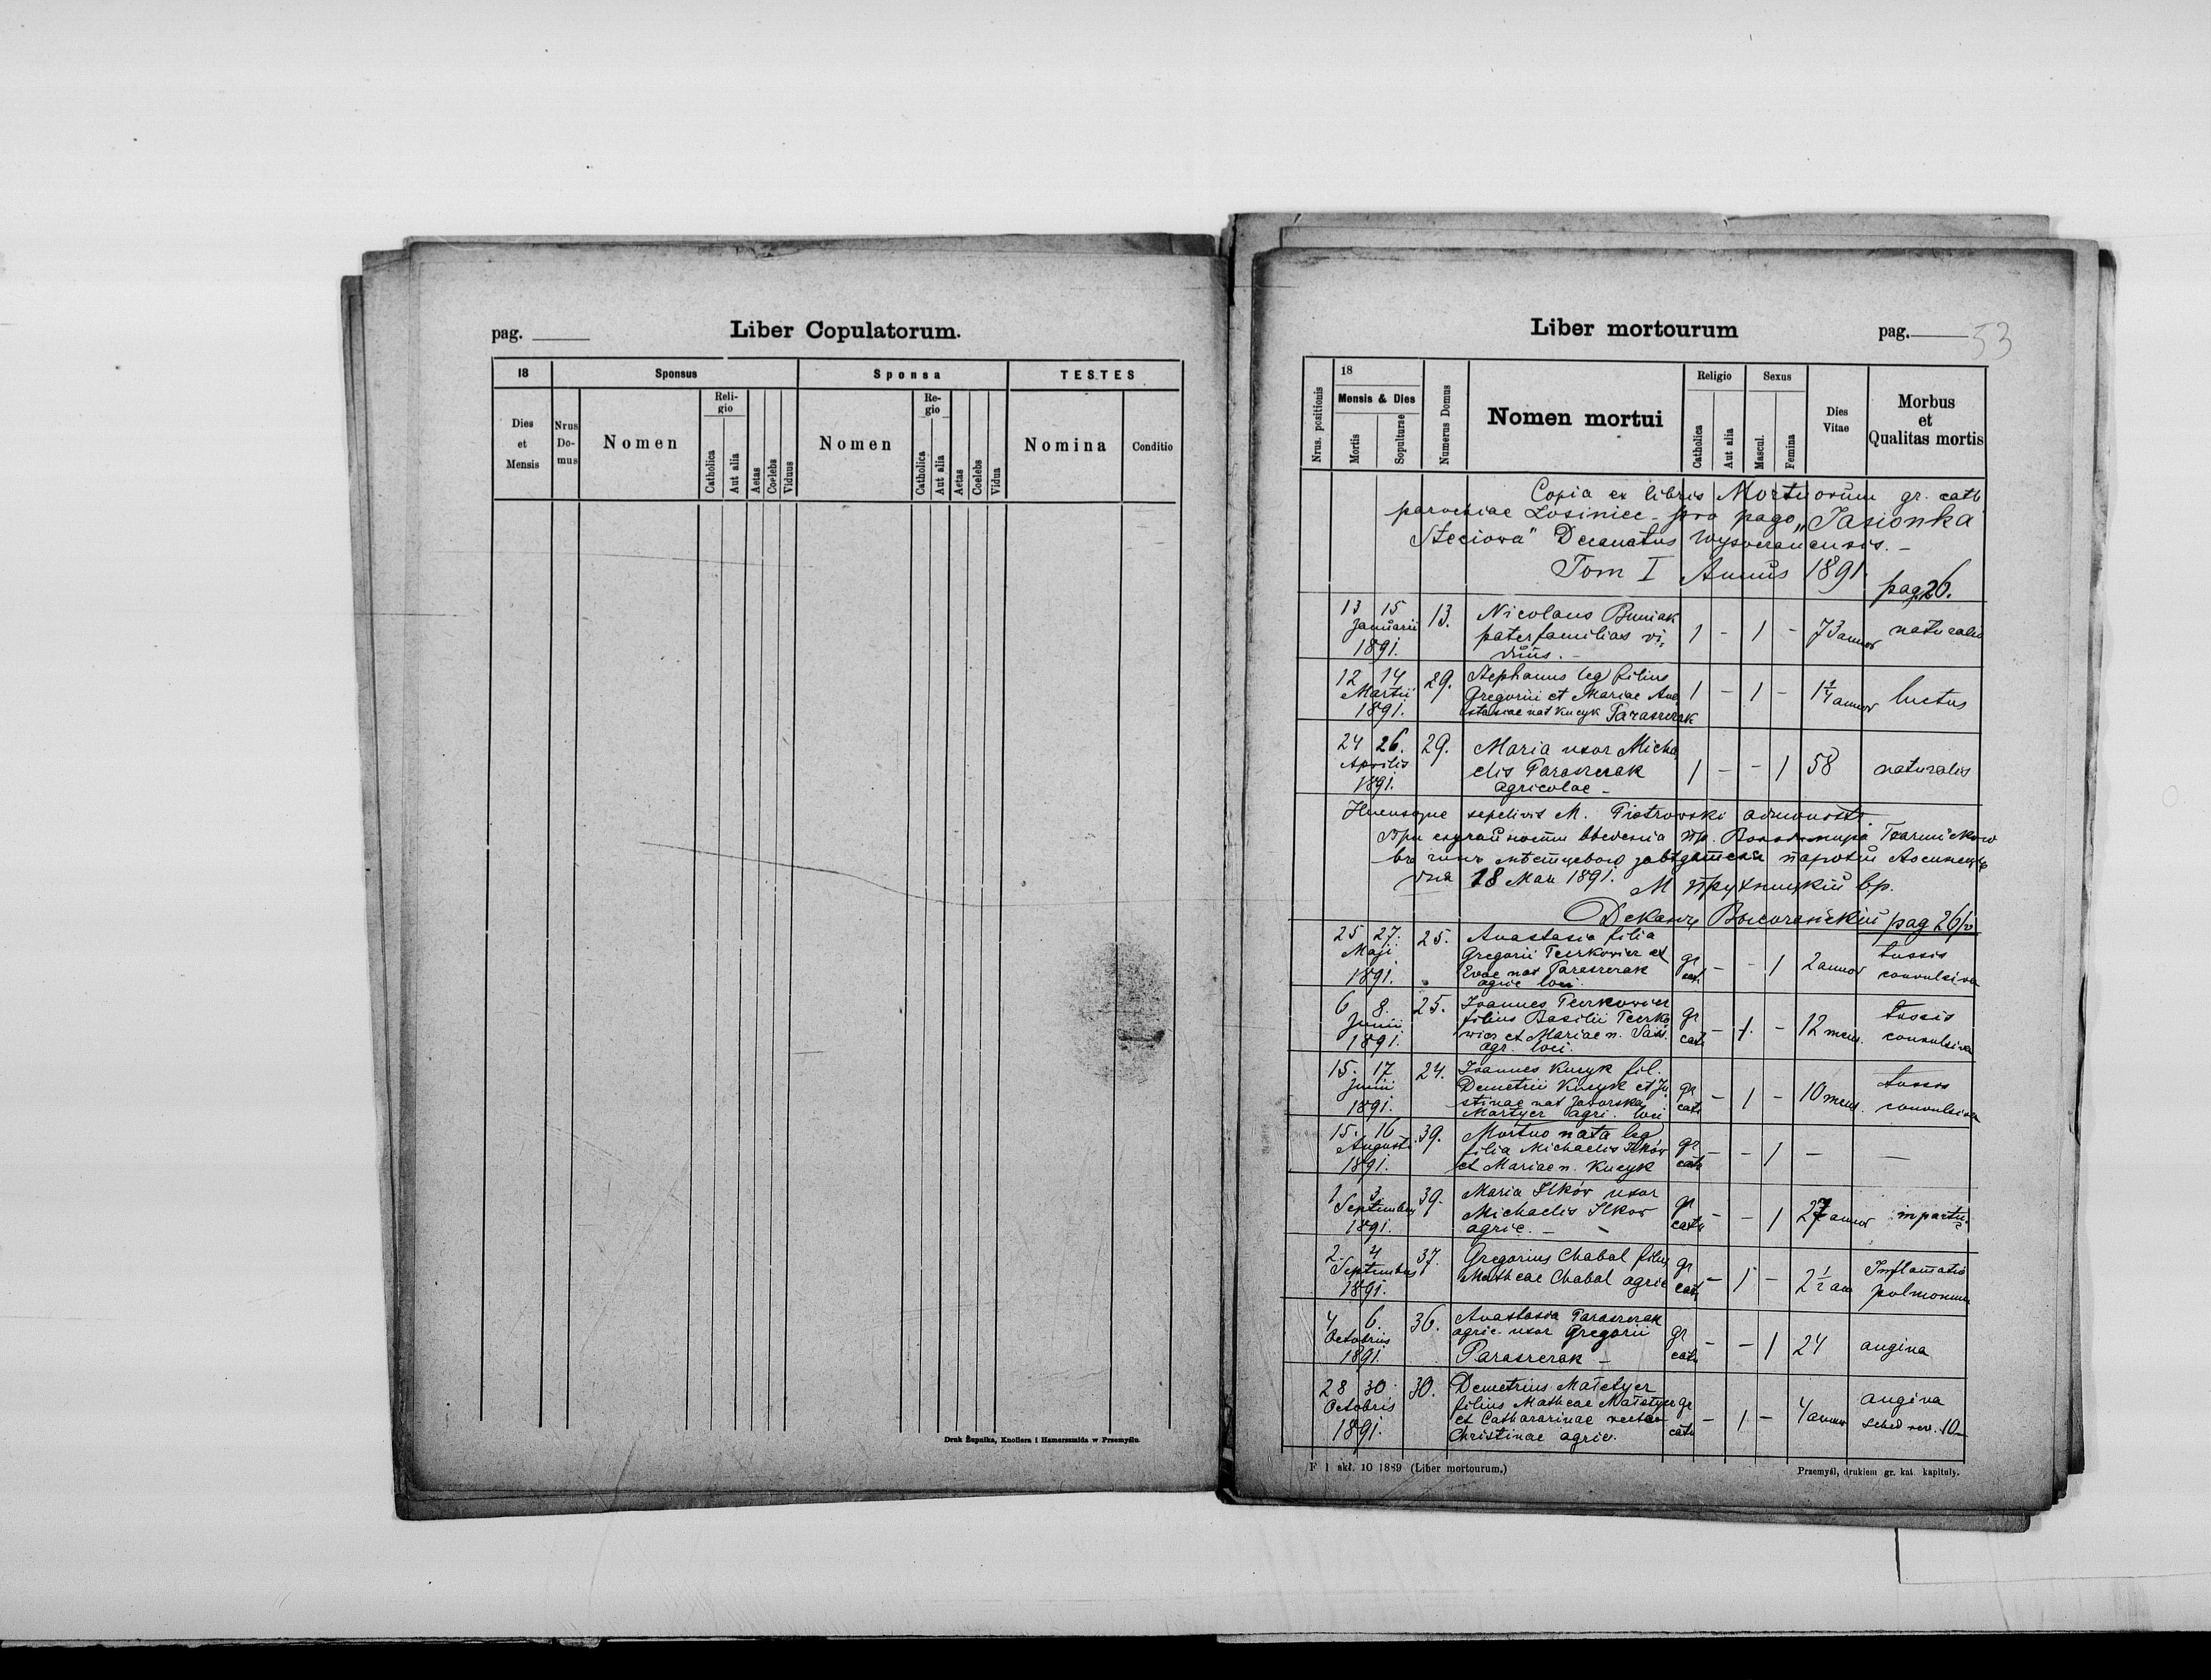 pag.
Liber Copulatorum.
18
Sponsus
Sponsa
TESTES
Dies
et
Mensis
Nrus
Do-
mus
Nomen
Reli-
gio
Catholica
Aut alia
Aetas
Coelebs
Viduus
Nomen
Re-
gio
Catholica
Aut alia
Aetas
Coelebs
Vidua
Nomina
Conditio
Druk Żupnika, Knollera i Hamerszmida w Przemyślu.
Liber mortourum
pag. 53
Nrus. positionis
18
Mensis & Dies
Mortis
Sepulturae
Numerus Domus
Nomen mortui
Religio
Catholica
Aut alia
Sexus
Mascul.
Femina
Dies
Vitae
Morbus
et
Qualitas mortis
Copia ex libris Mortuorum gr. cath
parochiae Łosiniec pro pago „Jasionka
Steciowa" Decanatus Wysocranensis. -
Tom I Annus 1891.
pag 26.
13 15 13. Nicolaus Buniak
Januarii paterfamilias vi, 1 - 1 - 73 annor naturalis
1891. duus. -
12 14 29. Stephanus leg filius
Martii Gregorii et Mariae Ana 1 - 1 - 1 1/4 annor luctus
1891. stasiae nat Kucyk Paraszczak
24 26. 29. Maria uxor Micha
Aprilis elis Paraszczak 1 - - 1 58 naturalis
1891. agricolae -
Hucusque sepelivit M. Piotrowski
дня 18 Мая 1891. М вр.
Деканъ Высочанскій pag 26/v
25 27. 25. Anastasia filia
Maji Gregorii et gr - - 1 2 annor tussis
1891. Evae nat Paraszczak cat. convulsiva
agric loci.
6 8. 25. Joannes
Junii filius Basilii gr - 1. - 12 mens. tussis
1891. et Mariae n. cath convulsiva
agr. loci.
15. 17 24. Joannes Kucyk fil.
Junii Demetrii Kucyk et Ju gr - 1 - 10 mens. tussis
1891. stinae nat Jaworska cath convulsiva
Martyer agri. loci
15. 16 39. Mortuo nata leg
Augusti filia Michaelis Ilków gr - - 1 - -
1891. et Mariae n. Kucyk cath
1 3. 39. Maria Ilków uxor
Septembris Michaelis Ilkow gr - - 1 27 annor in partu
1891. agric. - cath
2. 4 37. Gregorius Chabal filius gr
Septembris Matheae Chabal agric cath - 1 - 2 1/2 an Inflamatio
1891. pulmonum
4 6. 36. Anastasia Paraszczak
Octobris agric. uxor Gregorii gr - - 1 24 angina
1891. Paraszczak - cath
28 30 30. Demetrius Matetycz
Octobris filius Matheae gr - 1 - 4 annor angina
1891. et Cathararinae cath 10
Christinae agric.
F 1 skł. 10 1889 (Liber mortourum.)
Przemyśl, drukiem gr. kat. kapituly.